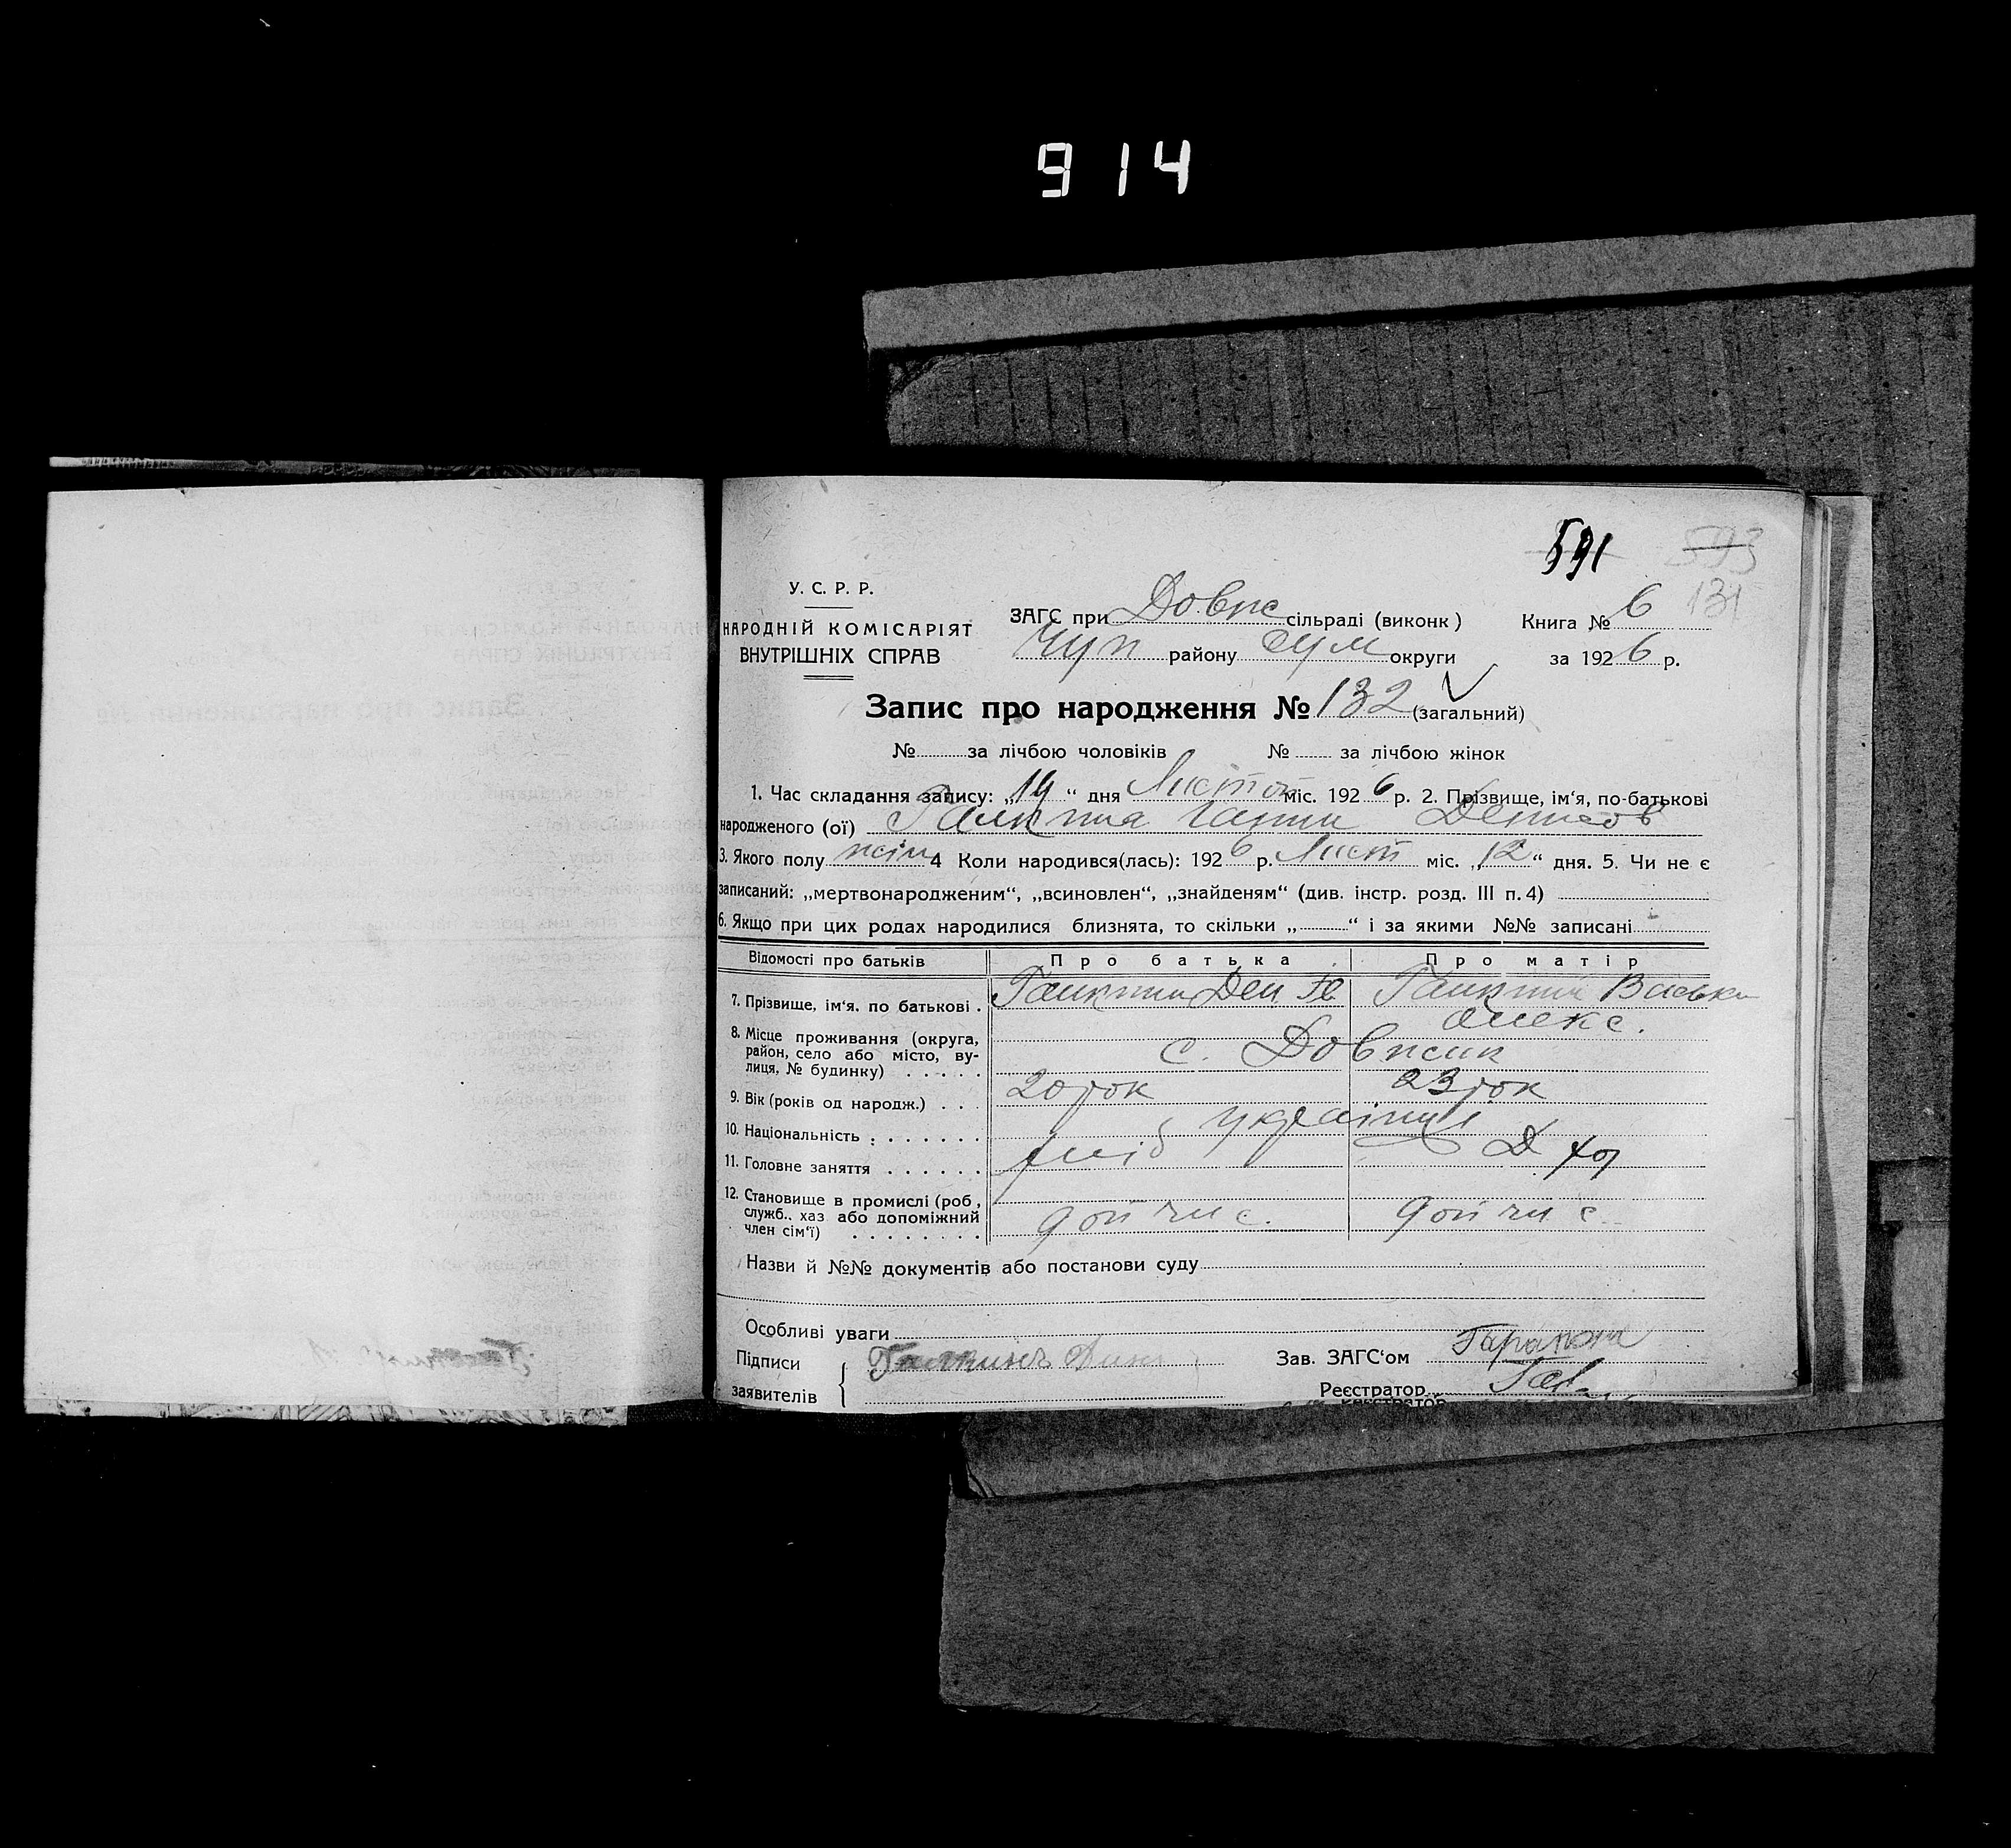 914
591 593
У. С. Р. Р.
131
НАРОДНІЙ КОМІСАРІЯТ
ВНУТРІШНІХ СПРАВ
ЗАГС при Довж сільраді (виконк)
Книга № 6
Чуп району Сум округи
за 1926 р.
Запис про народження № 132 (загальний)
№ за лічбою чоловіків № за лічбою жінок
1. Час складання запису: „14“ дня Листоп міс. 1926 р. 2. Прізвище, ім‘я, по-батькові
народженого (ої) Галкина Ганна Денисов
3. Якого полу жін 4 Коли народився(лась): 1926 р. Лист міс. „12“ дня. 5. Чи не є
записаний: „мертвонародженим“, „всиновлен“, „знайденям“ (див. інстр. розд. III п. 4)
6. Якщо при цих родах народилися близнята, то скільки „ “ і за якими №№ записані
Відомості про батьків Про батька Про матір
7. Прізвище, ім‘я, по батькові . Галкин Ден Галкина
Олекс.
8. Місце проживання (округа,
район, село або місто, ву-
лиця, № будинку) . . . . .
с. Довжик
9. Вік (років од народж.) . . . 20 рок 23 рок
10. Національність . . . . . . . україн
11. Головне заняття . . . . . . хліб
12. Становище в промислі (роб,
служб.. хаз або допоміжний
член сім‘ї) . . . . . . . .
доп чл с. доп чл с.
Назви й №№ документів або постанови суду
Особливі уваги
Підписи
заявителів
Галкинъ
Зав. ЗАГС‘ом
Реєстратор
Реєстратор